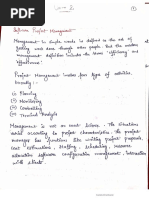 Software Project Management
Management in simple words is defined is the art of
getting work done through other people. But the modern
management definition includes the terms "efficiency" and
"effectiveness".
Project Management involves four type of activities,
Namely:-
(i) Planning
(ii) Monitoring
(iii) Controlling
(iv) Terminal Analysis
Management is not an exact science. The situations
arise according to project characteristics. The project
manager has functions like writing project proposals,
cost estimation, scheduling, staffing, insurance
allocation software configuration management, interaction
with clients.